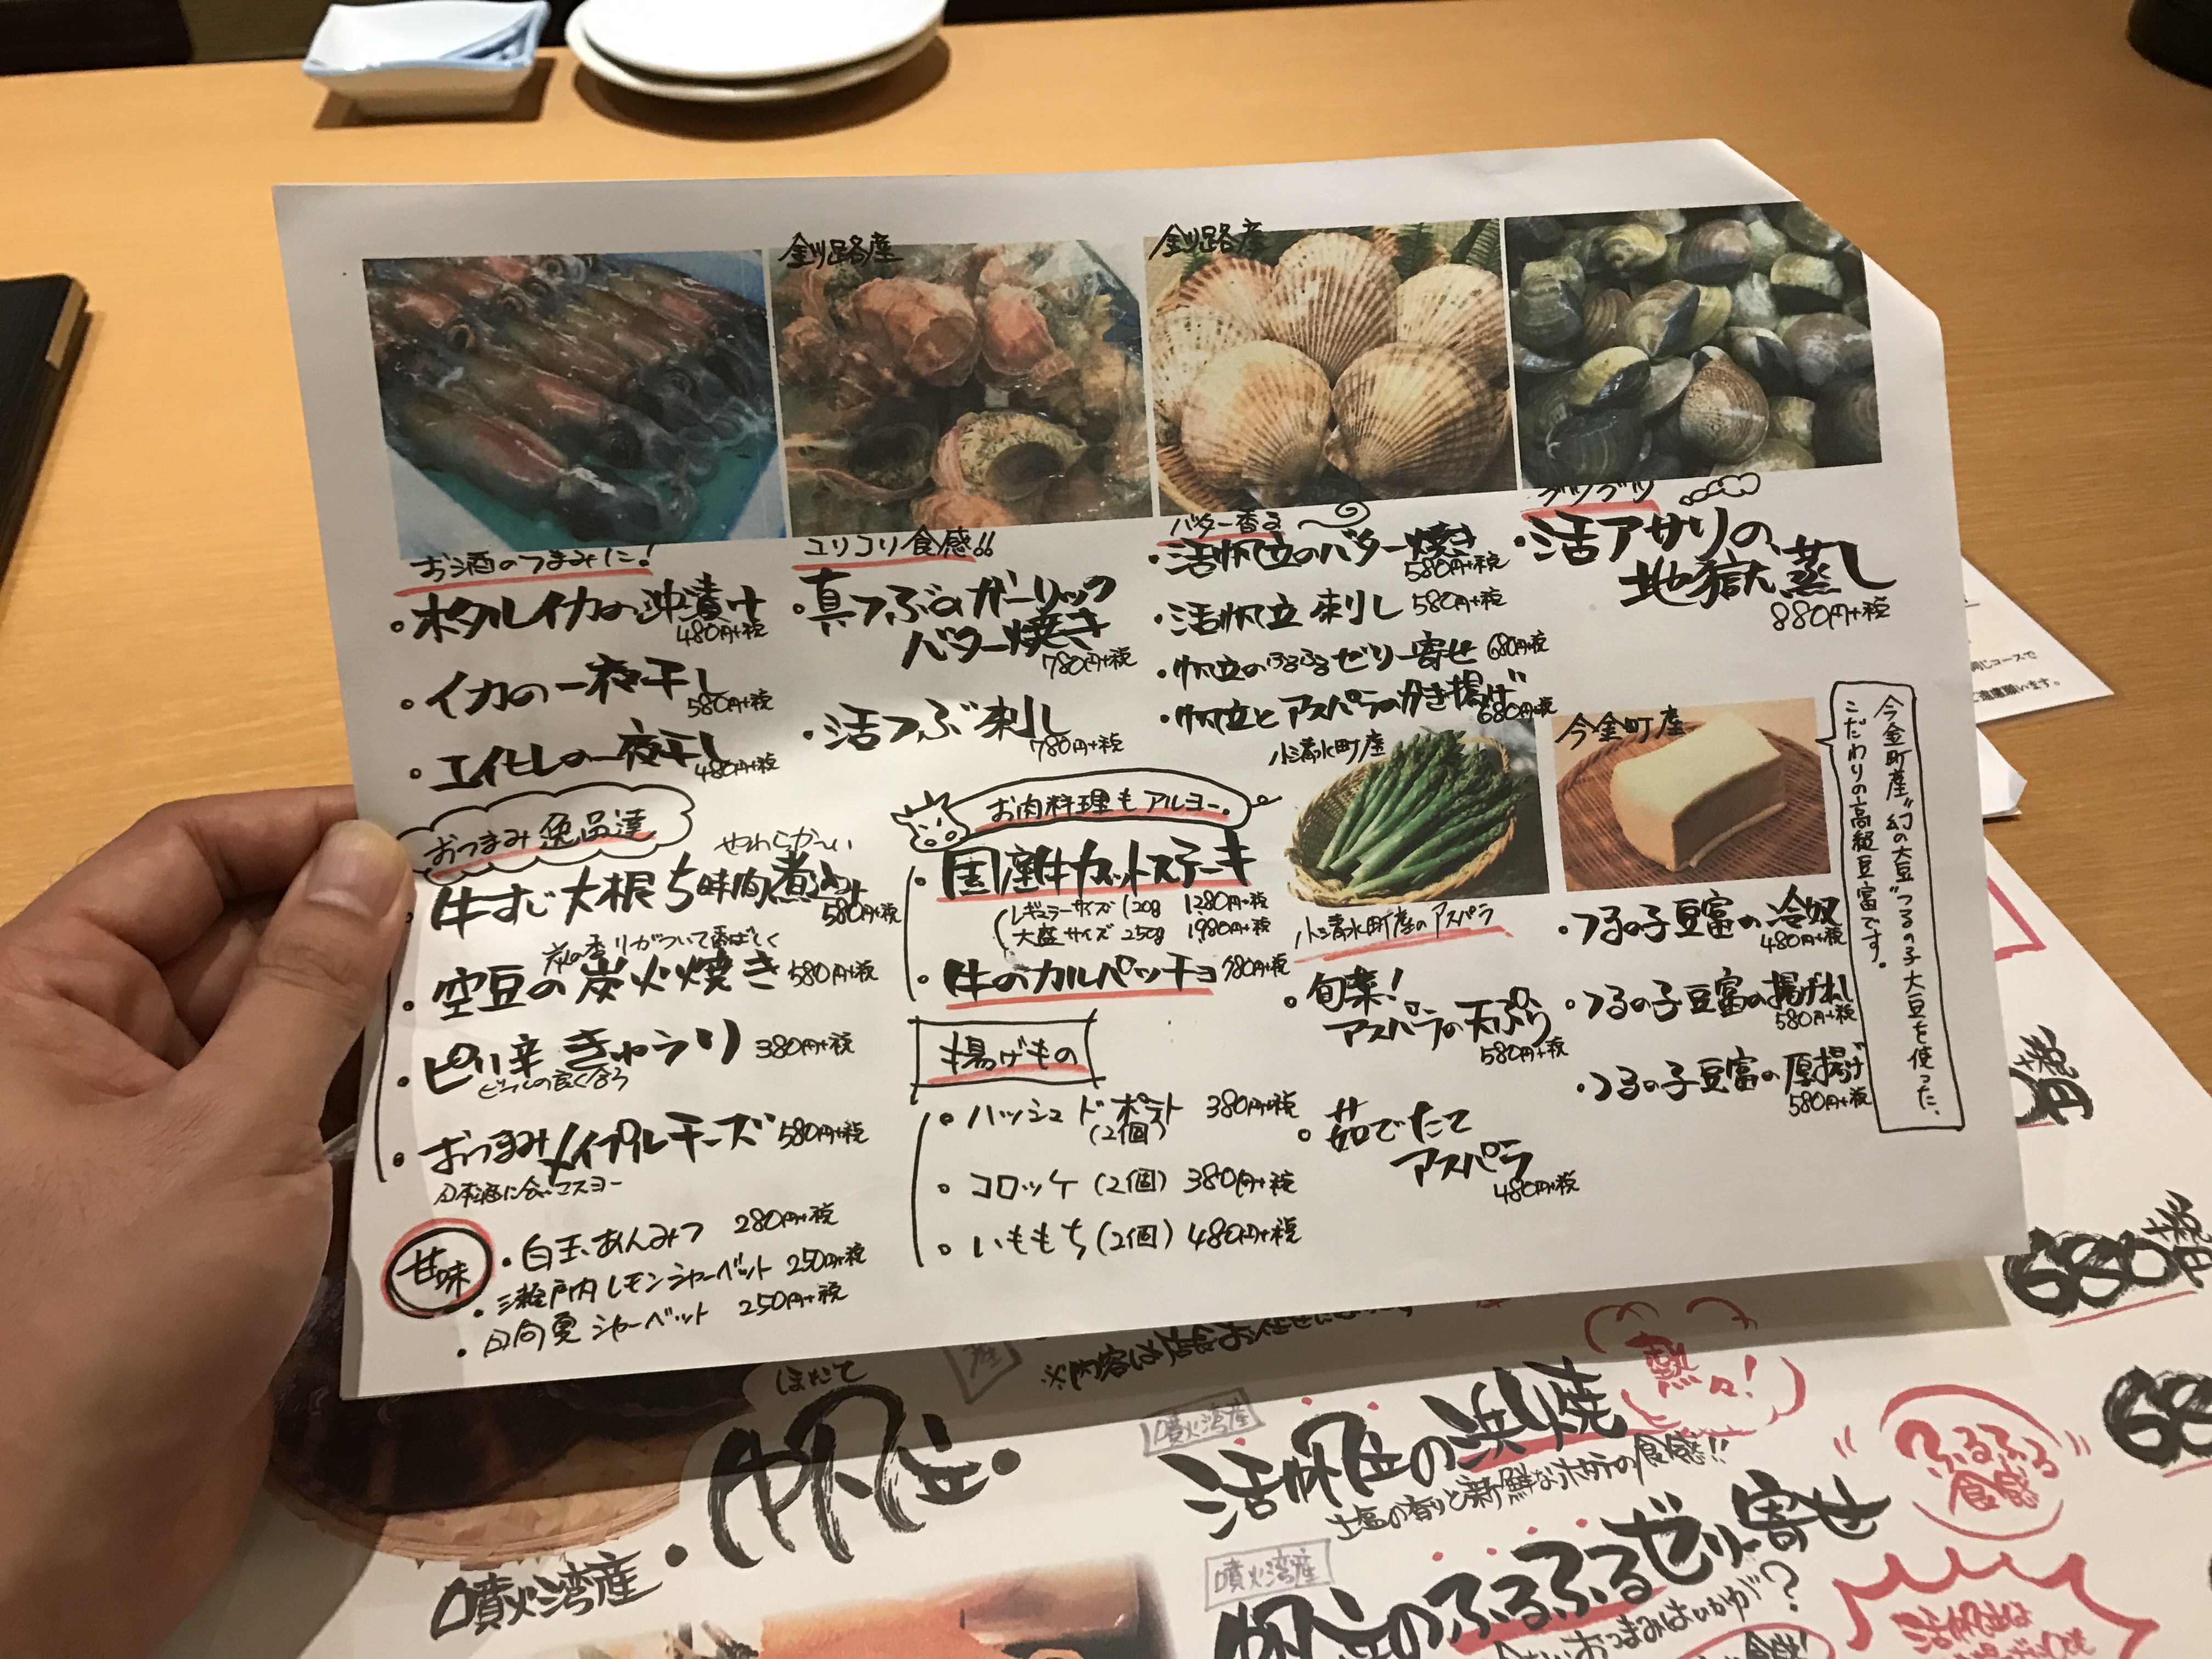 釧路産
釧路産
お酒のつまみに!
・ホタルイカの沖漬け
480円+税
・イカの一夜干し
580円+税
・エイヒレの一夜干し
480円+税
コリコリ食感!!
・真つぶのガーリック
バター焼き
780円+税
・活つぶ刺し
780円+税
バター香る
・活帆立のバター焼き
580円+税
・活帆立刺し 580円+税
・帆立のふるふるゼリー寄せ 680円+税
・帆立とアスパラのかき揚げ
680円+税
グツグツ
・活アサリの、
地獄蒸し
880円+税
おつまみ逸品達
やわらか〜い
・牛すじ大根5時間煮込み
580円+税
炭の香りがついて香ばしく
・空豆の炭火焼き 580円+税
・ピリ辛きゅうり 380円+税
ビールの良く合う
・おつまみメイプルチーズ 580円+税
日本酒に合いマスヨー
甘味
・白玉あんみつ 280円+税
・瀬戸内レモンシャーベット 250円+税
・日向夏シャーベット 250円+税
お肉料理もアルヨー。
・国産牛カットステーキ
レギュラーサイズ 120g 1,280円+税
大盛サイズ 250g 1,980円+税
・牛のカルパッチョ 780円+税
揚げもの
・ハッシュドポテト 380円+税
(2個)
・コロッケ(2個) 380円+税
・いももち(2個) 480円+税
小清水町産
小清水町産のアスパラ
・旬菜!
アスパラの天ぷら
580円+税
・茹でたて
アスパラ
480円+税
今金町産
・つるの子豆富の冷奴
480円+税
・つるの子豆富の揚げ出し
580円+税
・つるの子豆富の厚揚げ
580円+税
今金町産"幻の大豆"つるの子大豆を使った、
こだわりの高級豆富です。
同じコースで
ご遠慮願います。
ほたて
帆立・
噴火湾産・
噴火湾産
活帆立の浜焼
熱々!
塩の香りと新鮮なホタテの食感!!
噴火湾産
帆立のふるふるゼリー寄せ
ふるふる
食感
おつまみはいかが?
680円
税
68
活帆立は